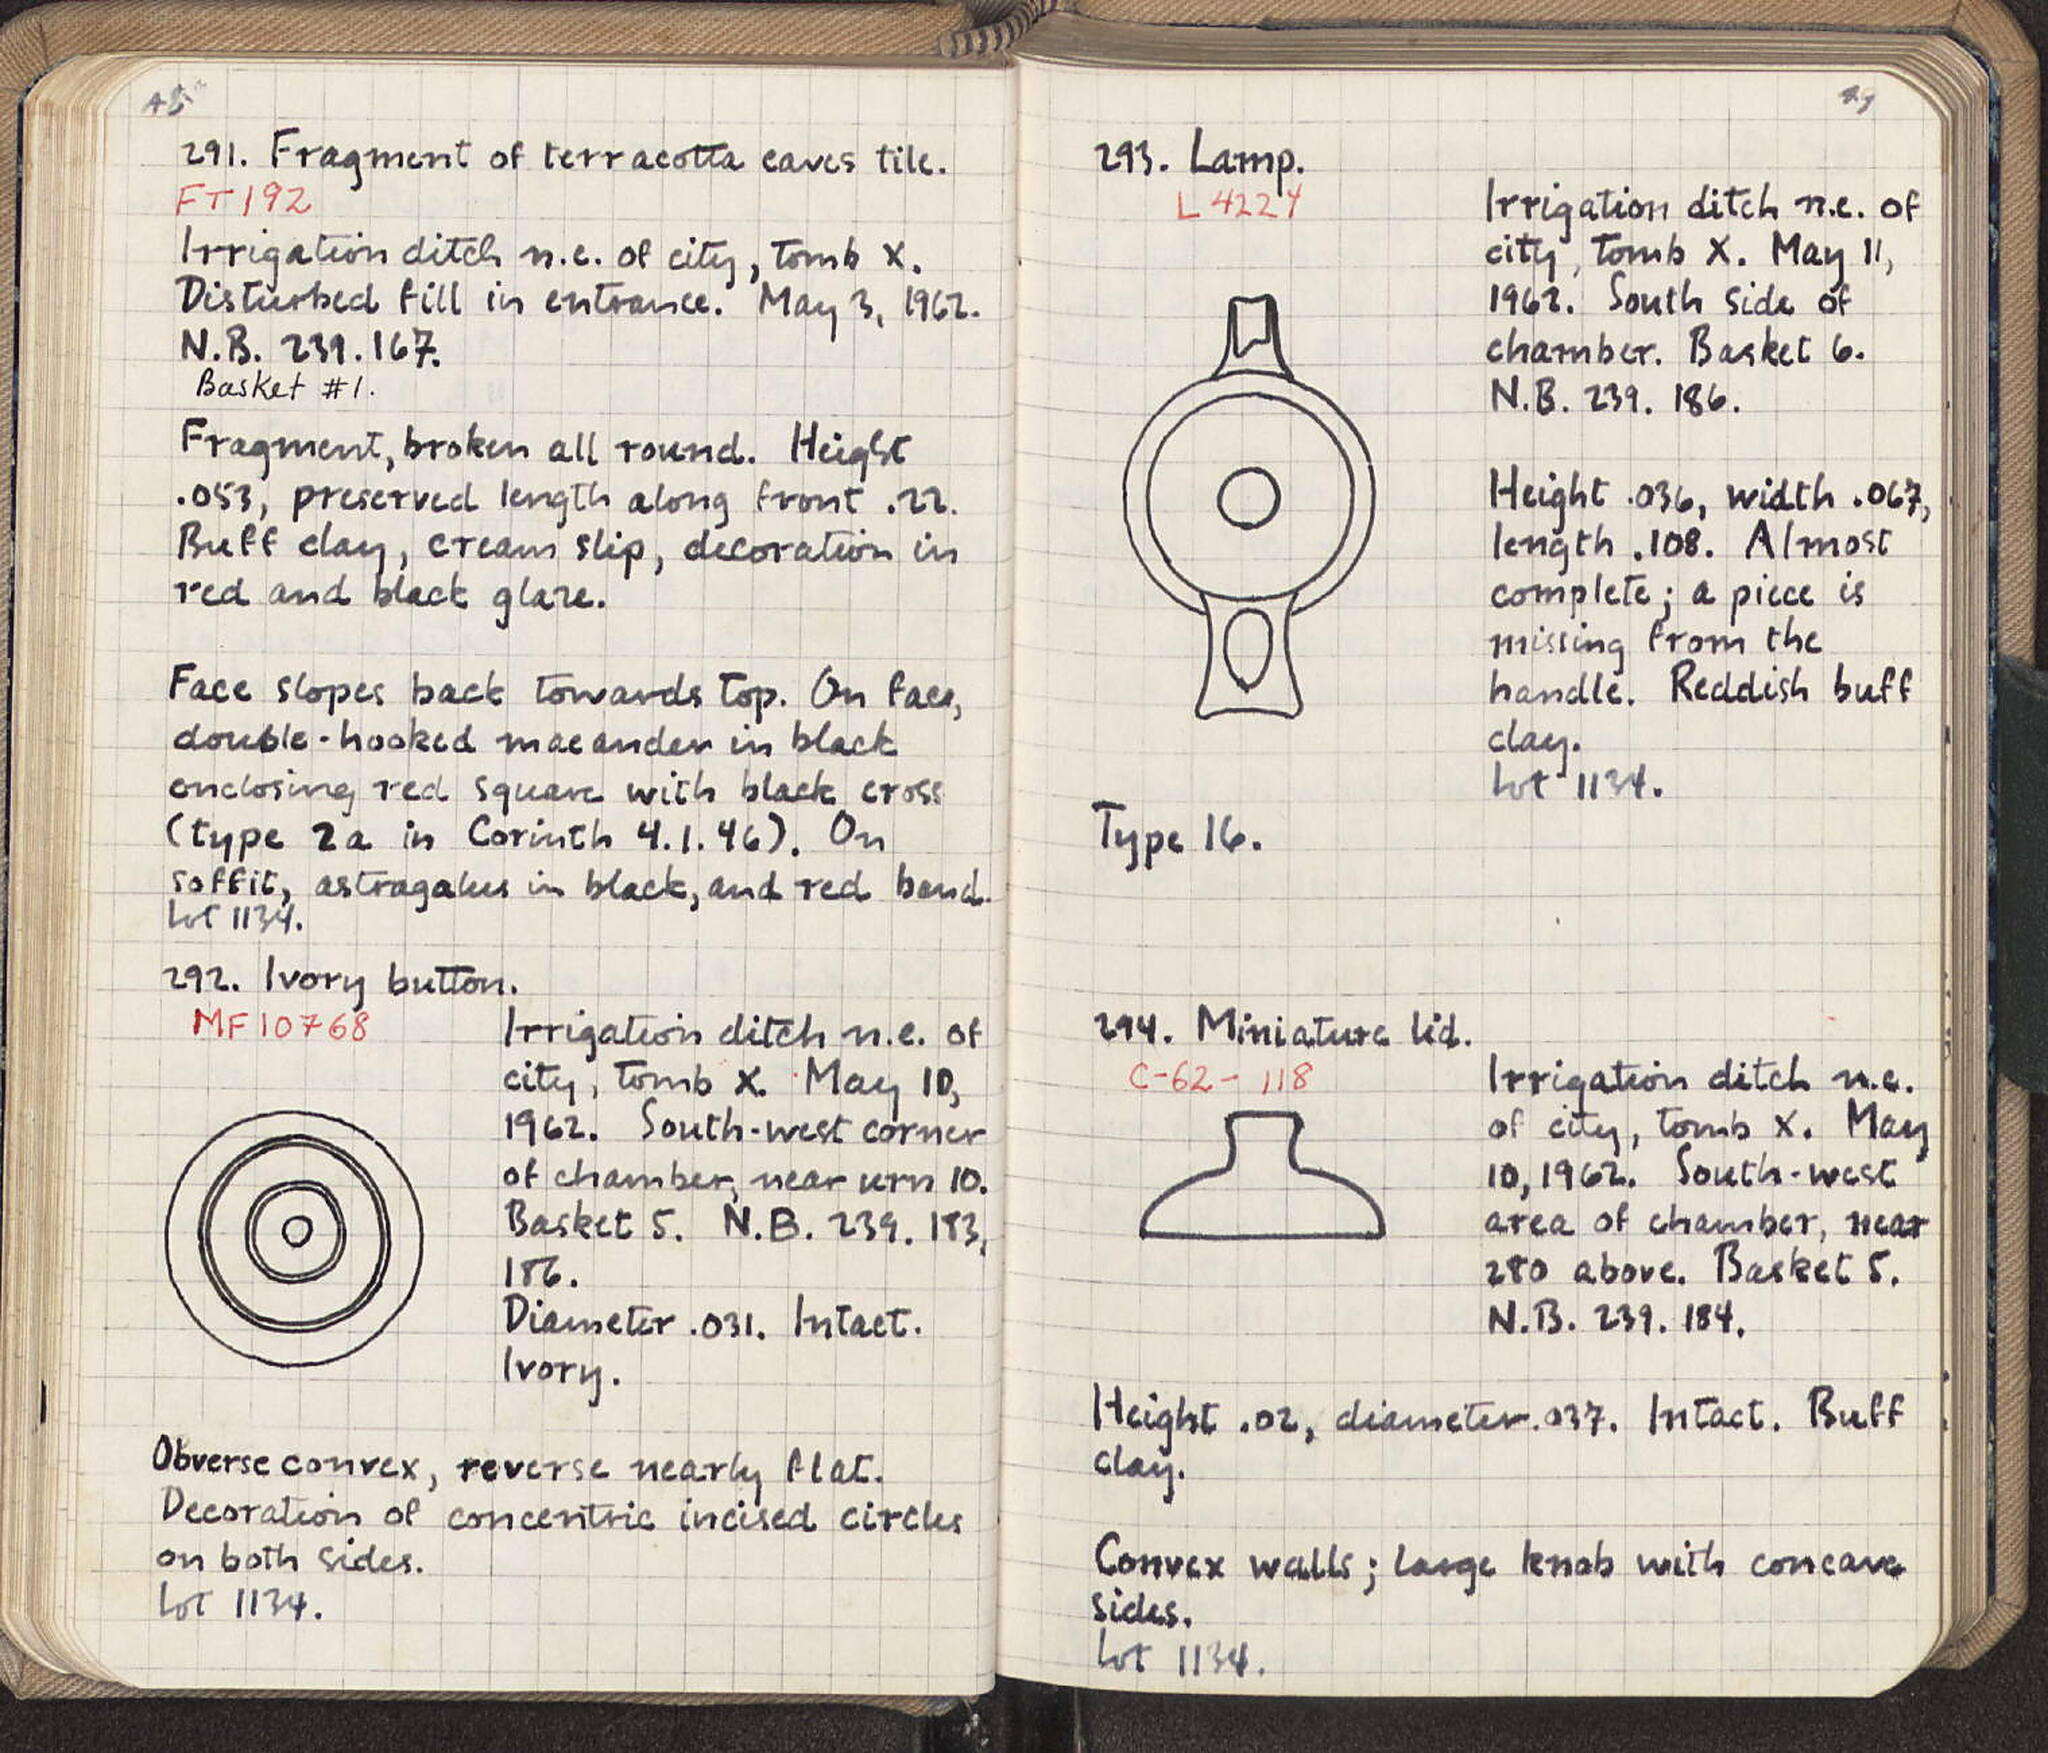 291. Fragment of terracotta eaves tile.
FT192
Irrigation ditch n.e. of city, tomb X.
Disturbed fill in entrance. May 3, 1962.
N.B. 239.167.
Basket #1.
Fragment, broken all round. Height
.053, preserved length along front .22.
Buff clay, cream slip, decoration in
red and black glaze.
Face slopes back towards top. On face,
double-hooked maeander in black
enclosing red square with black cross
(type 2a in Corinth 4.1.46). On
soffit, astragalus in black, and red band.
Lot 1134.
292. Ivory button.
MF10768
Irrigation ditch n.e. of
city, tomb X. May 10,
1962. South-west corner
of chamber, near urn 10.
Basket 5. N.B. 239. 183,
186.
Diameter .031. Intact.
Ivory.
Obverse convex, reverse nearly flat.
Decoration of concentric incised circles
on both sides.
Lot 1134.
49
293. Lamp.
L 4224
Irrigation ditch n.e. of
city, tomb X. May 11,
1962. South side of
chamber. Basket 6.
N.B. 239. 186.
Height .036, width .067,
length .108. Almost
complete; a piece is
missing from the
handle. Reddish buff
clay.
Lot 1134.
Type 16.
294. Miniature lid.
C-62-118
Irrigation ditch n.e.
of city, tomb X. May
10, 1962. South-west
area of chamber, near
280 above. Basket 5.
N.B. 239. 184.
Height .02, diameter .037. Intact. Buff
clay.
Convex walls; large knob with concave
sides.
Lot 1134.